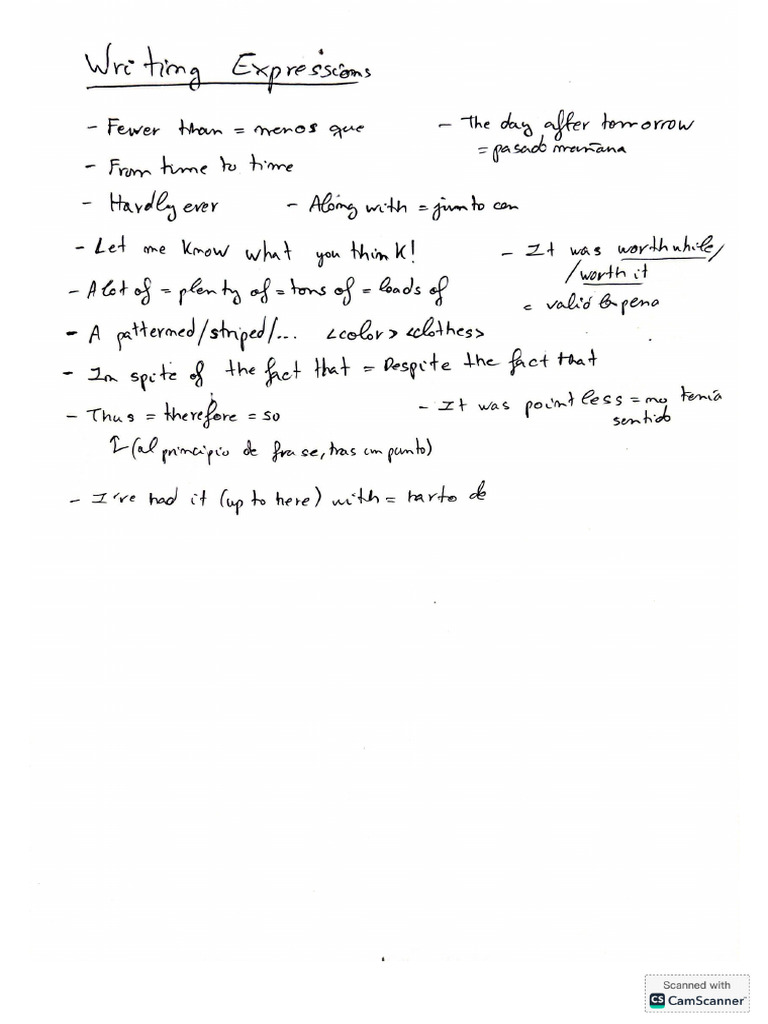 Writing Expressions
- Fewer than = menos que
- The day after tomorrow
= pasado mañana
- From time to time
- Hardly ever
- Along with = junto con
- Let me know what you think!
- It was worthwhile/
/worth it
= valió la pena
- A lot of = plenty of = tons of = loads of
- A patterned/striped/... <color> <clothes>
- In spite of the fact that = Despite the fact that
- Thus = therefore = so
(al principio de frase, tras un punto)
- It was pointless = no tenía
sentido
- I've had it (up to here) with = harto de
Scanned with
CS CamScanner